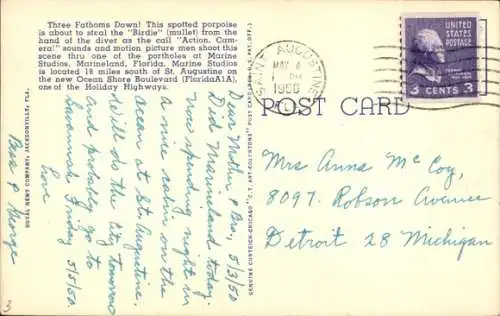 Three Fathoms Down! This spotted porpoise
is about to steal the "Birdie" (mullet) from the
hand of the diver as the call "Action, Cam-
era!" sounds and motion picture men shoot this
scene thru one of the portholes at Marine
Studios, Marineland, Florida. Marine Studios
is located 18 miles south of St. Augustine on
the new Ocean Shore Boulevard (FloridaA1A),
one of the Holiday Highways.
DUVAL NEWS COMPANY, JACKSONVILLE, FLA.
5/3/50
Dear Mother & Bro.,
Did Marineland today.
Now spending night in
a nice cabin on the
ocean at St. Augustine.
Will do the City tomorrow
and probably go to
Savannah Friday 5/5/50.
Love
Bess & George
3
GENUINE CURTEICH-CHICAGO "C.T. ART-COLORTONE" POST CARD (REG. U.S. PAT. OFF.)
POST CARD
SAINT AUGUSTINE
MAY 4
1950
FLA.
UNITED
STATES
POSTAGE
3 CENTS 3
Mrs Anna Mc Coy,
8097 Robson Avenue
Detroit 28 Michigan